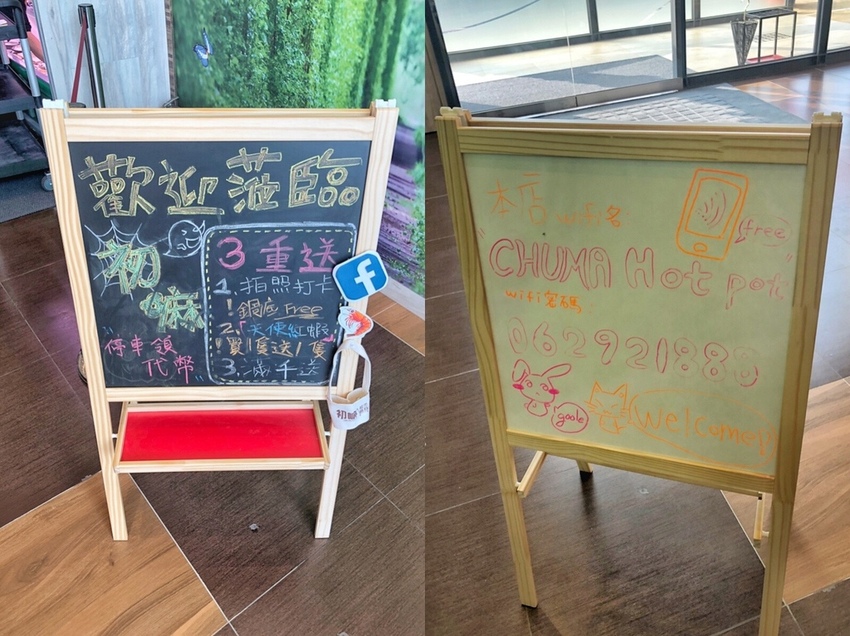 歡迎蒞臨
初嘛
"停車領
代幣"
3重送
1. 拍照打卡
！鍋底Free
2.「天使紅蝦」
！買1隻送1隻
3. 滿千送
f
本店wifi名
free
"CHUMA Hot pot"
wifi密碼
062921880
goole
Welcome!!